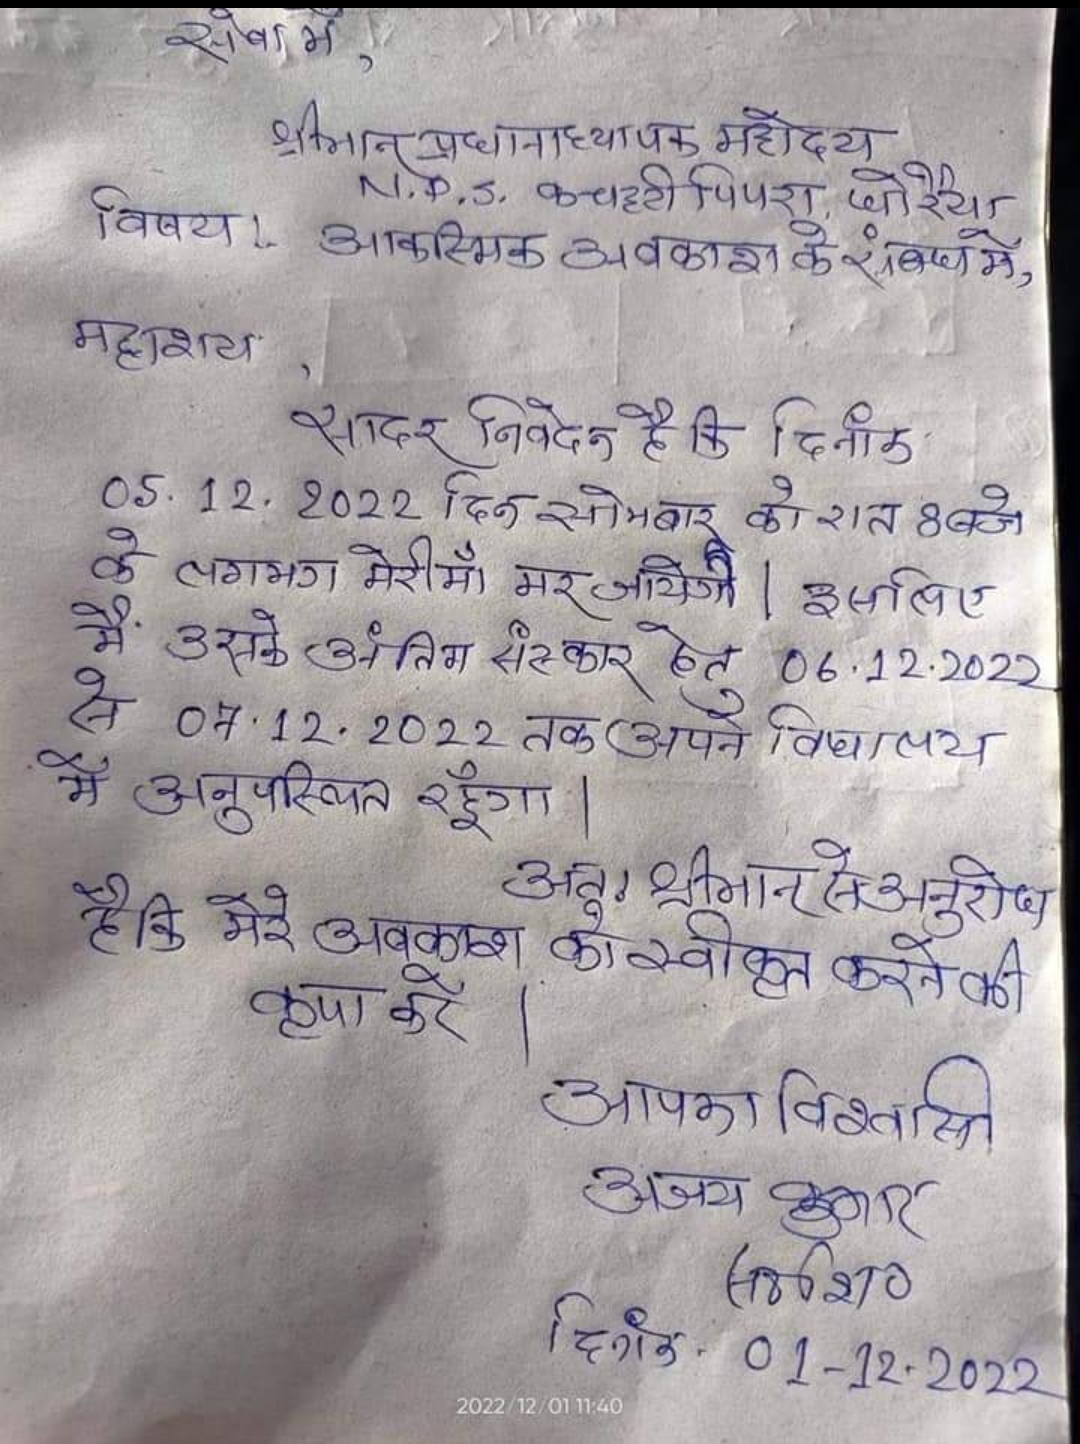 सेवा में,
श्रीमान् प्रधानाध्यापक महोदय
N.P.S. कचहरी पिपरा, धोरैया
विषय:- आकस्मिक अवकाश के संबंध में,
महाशय,
सादर निवेदन है कि दिनांक
05.12.2022 दिन सोमबार को रात 8 बजे
के लगभग मेरी माँ मर जायेगी। इसलिए
मैं उसके अंतिम संस्कार हेतु 06.12.2022
से 07.12.2022 तक अपने विद्यालय
में अनुपस्थित रहूँगा।
अतः श्रीमान् से अनुरोध
है कि मेरे अवकाश को स्वीकृत करने की
कृपा करें।
आपका विश्वासी
अजय कुमार
दिनांक. 01-12.2022
2022/12/01 11:40